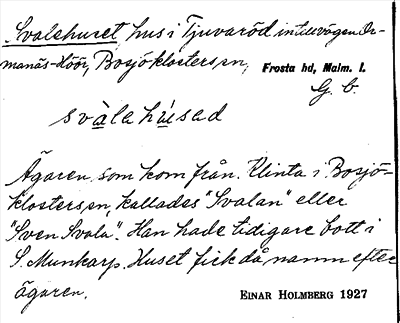 Svalehuset, hus i Tjuvaröd intill vägen Or-
manäs-Höör, Bosjökloster sn,
Frosta hd, Malm. l.
G. b.
svàlahúsad
Ägaren som kom från Klinta i Bosjö-
kloster sn, kallades "Svalan" eller
"Sven Svala". Han hade tidigare bott i
S. Munkarp. Huset fick då namn efter
ägaren.
EINAR HOLMBERG 1927